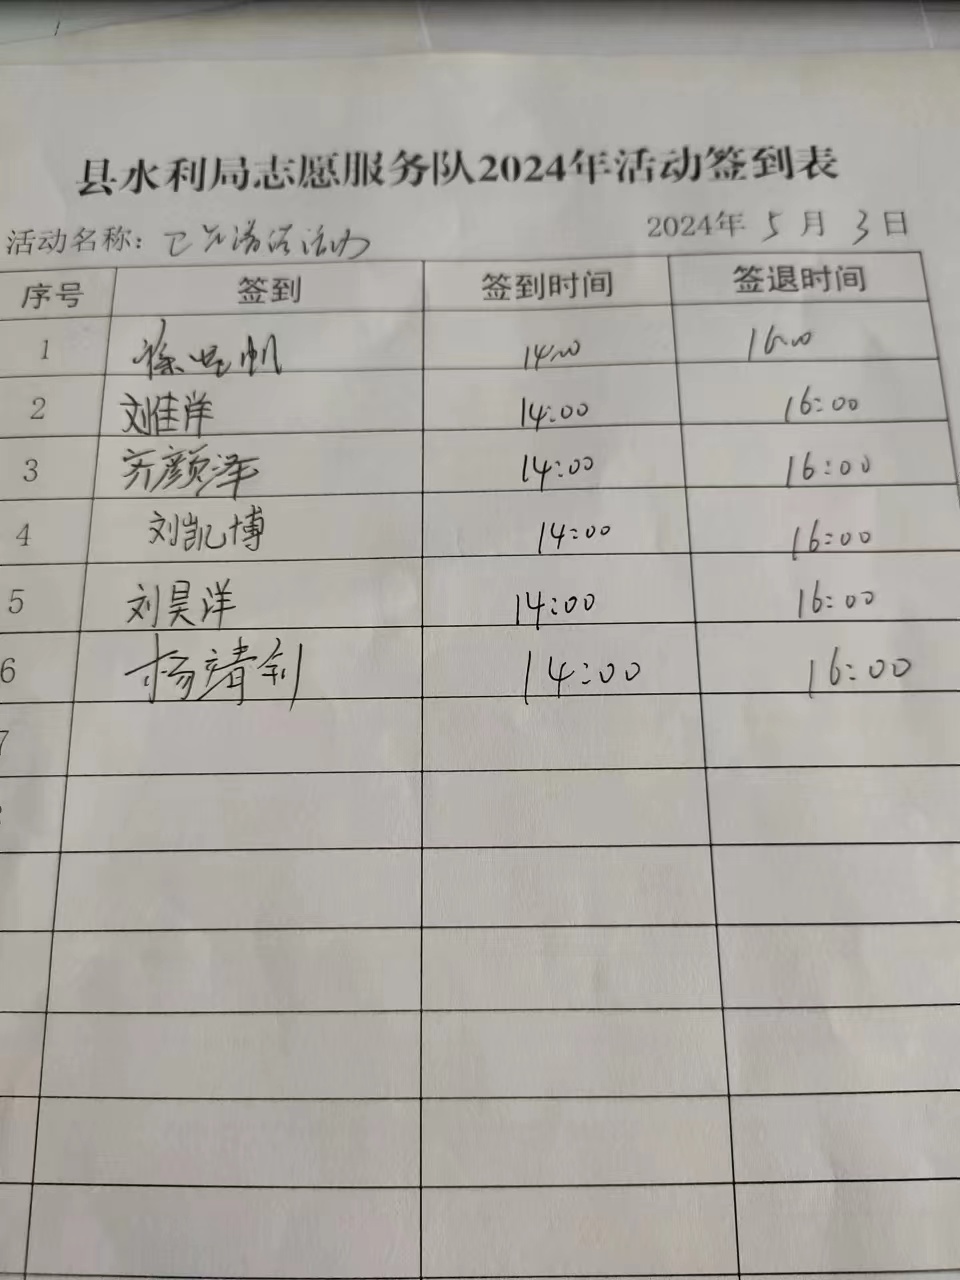 县水利局志愿服务队2024年活动签到表
活动名称: 卫生清洁活动 2024年 5 月 3 日
序号 签到 签到时间 签退时间
1 徐 帆 14:00 16:00
2 刘佳洋 14:00 16:00
3 齐颜泽 14:00 16:00
4 刘凯博 14:00 16:00
5 刘昊洋 14:00 16:00
6 杨靖钊 14:00 16:00
7